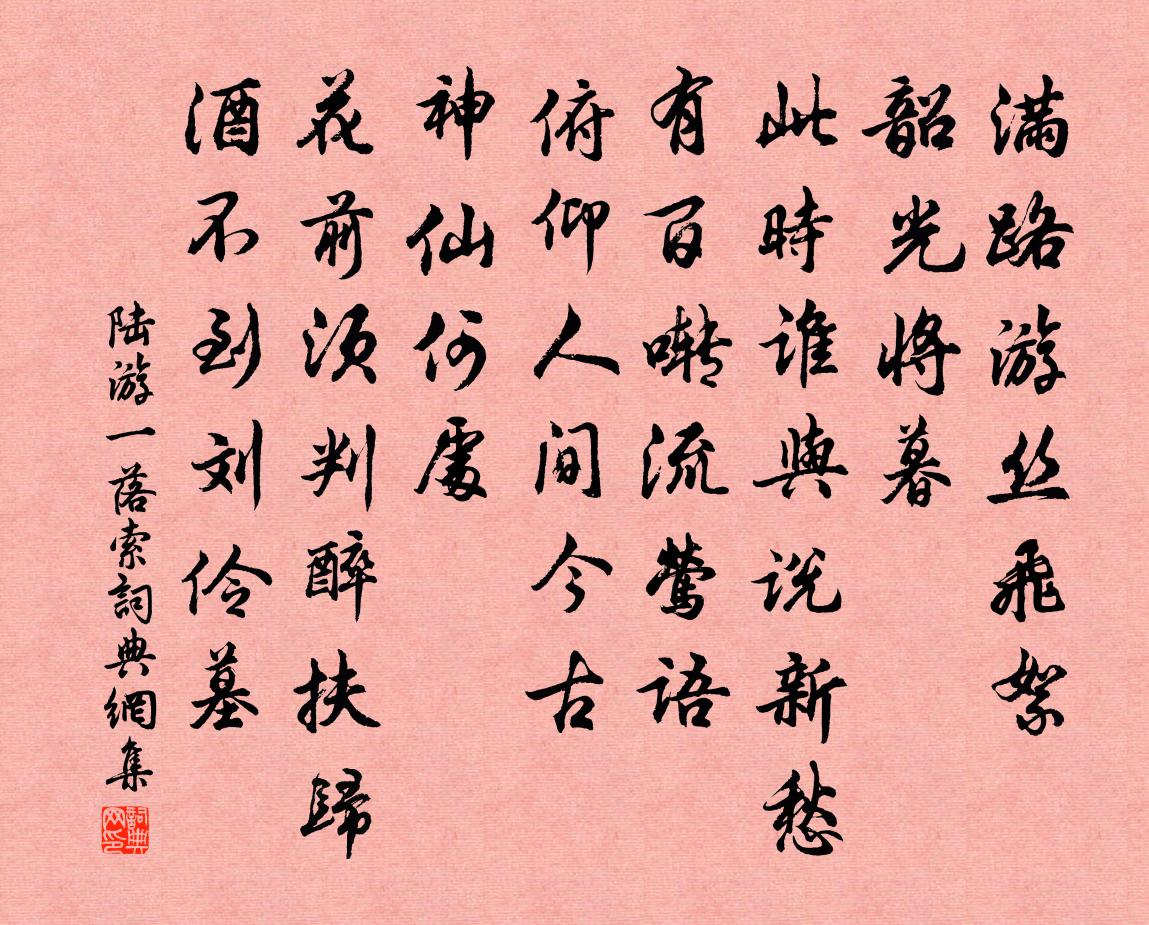 满路游丝飛絮
韶光將暮
此時誰與说新愁
有百啭流莺语
俯仰人间今古
神仙何處
花前须判醉扶歸
酒不到刘伶墓
陆游一落索詞典網集
詞典网印